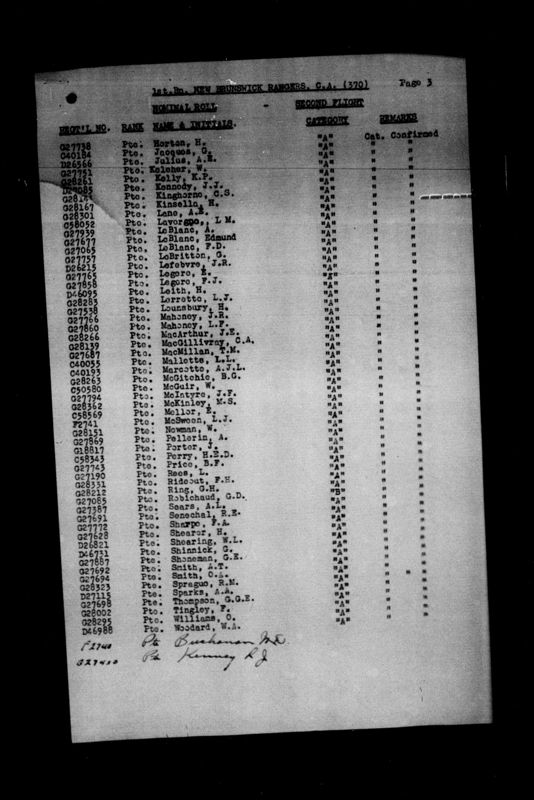 1st.Bn. NEW BRUNSWICK RANGERS, C.A. (370) Page 3
NOMINAL ROLL - SECOND FLIGHT
REGT'L NO. RANK NAME & INITIALS. CATEGORY REMARKS
G27738 Pte. Horton, H. "A" Cat. Confirmed
C40184 Pte. Jacques, G. "A" " "
D26566 Pte. Julius, A.E. "A" " "
G27751 Pte. Keleher, W. "A" " "
G28261 Pte. Kelly, K.P. "A" " "
Pte. Kennedy, J.J. "A" " "
Pte. Kinghorne, C.S. "A" " "
G28167 Pte. Kinsella, H. "A" " "
G28301 Pte. Lane, A.E. "A" " "
C58052 Pte. Lavorgne, L M. "A" " "
G27939 Pte. LeBlanc, A. "A" " "
G27677 Pte. LeBlanc, Edmund "A" " "
G27065 Pte. LeBlanc, F.D. "A" " "
G27757 Pte. LeBritton, G. "A" " "
D26215 Pte. Lefebvre, J.R. "A" " "
G27765 Pte. Legere, E. "A" " "
G27858 Pte. Legere, F.J. "A" " "
D46095 Pte. Leith, H. "A" " "
G28283 Pte. Lorretto, L.J. "A" " "
G27538 Pte. Lounsbury, H. "A" " "
G27766 Pte. Mahoney, J.R. "A" " "
G27860 Pte. Mahoney, L.F. "A" " "
G28266 Pte. MacArthur, J.E. "A" " "
G28139 Pte. MacGillivray, C.A. "A" " "
G27687 Pte. MacMillan, T.M. "A" " "
C40055 Pte. Mallette, L.L. "A" " "
C40193 Pte. Marcotte, A.J.L. "A" " "
G28263 Pte. McGitchie, B.G. "A" " "
C50580 Pte. McGuir, W. "A" " "
G27794 Pte. McIntyre, J.F. "A" " "
G28362 Pte. McKinley, M.S. "A" " "
C58569 Pte. Mellor, E. "A" " "
F2741 Pte. McSween, L.J. "A" " "
G28151 Pte. Newman, W. "A" " "
G27869 Pte. Pellerin, A. "A" " "
G18817 Pte. Porter, J. "A" " "
C58343 Pte. Perry, H.E.D. "A" " "
G27743 Pte. Price, B.F. "A" " "
G27190 Pte. Rees, L. "A" " "
G28331 Pte. Rideout, F.H. "A" " "
G28212 Pte. Ring, G.H. "B" " "
G27085 Pte. Robichaud, G.D. "A" " "
G27387 Pte. Sears, A.L. "A" " "
G27691 Pte. Senechal, R.E. "A" " "
G27772 Pte. Sharpe, F.A. "A" " "
G27628 Pte. Shearer, H. "A" " "
D26821 Pte. Shearing, W.L. "A" " "
D46731 Pte. Shinnick, G. "A" " "
G27887 Pte. Shoneman, G.E. "A" " "
G27692 Pte. Smith, A.T. "A" " "
G27694 Pte. Smith, O.A. "A" " "
G28323 Pte. Sprague, R.M. "A" " "
D27115 Pte. Sparks, A.A. "A" " "
G27698 Pte. Thompson, G.G.E. "A" " "
G28002 Pte. Tingley, F. "A" " "
G28295 Pte. Williams, O. "A" " "
D46988 Pte. Woodard, W.A. "A" " "
F2740 Pte Buchanan
Pte Kenney R J